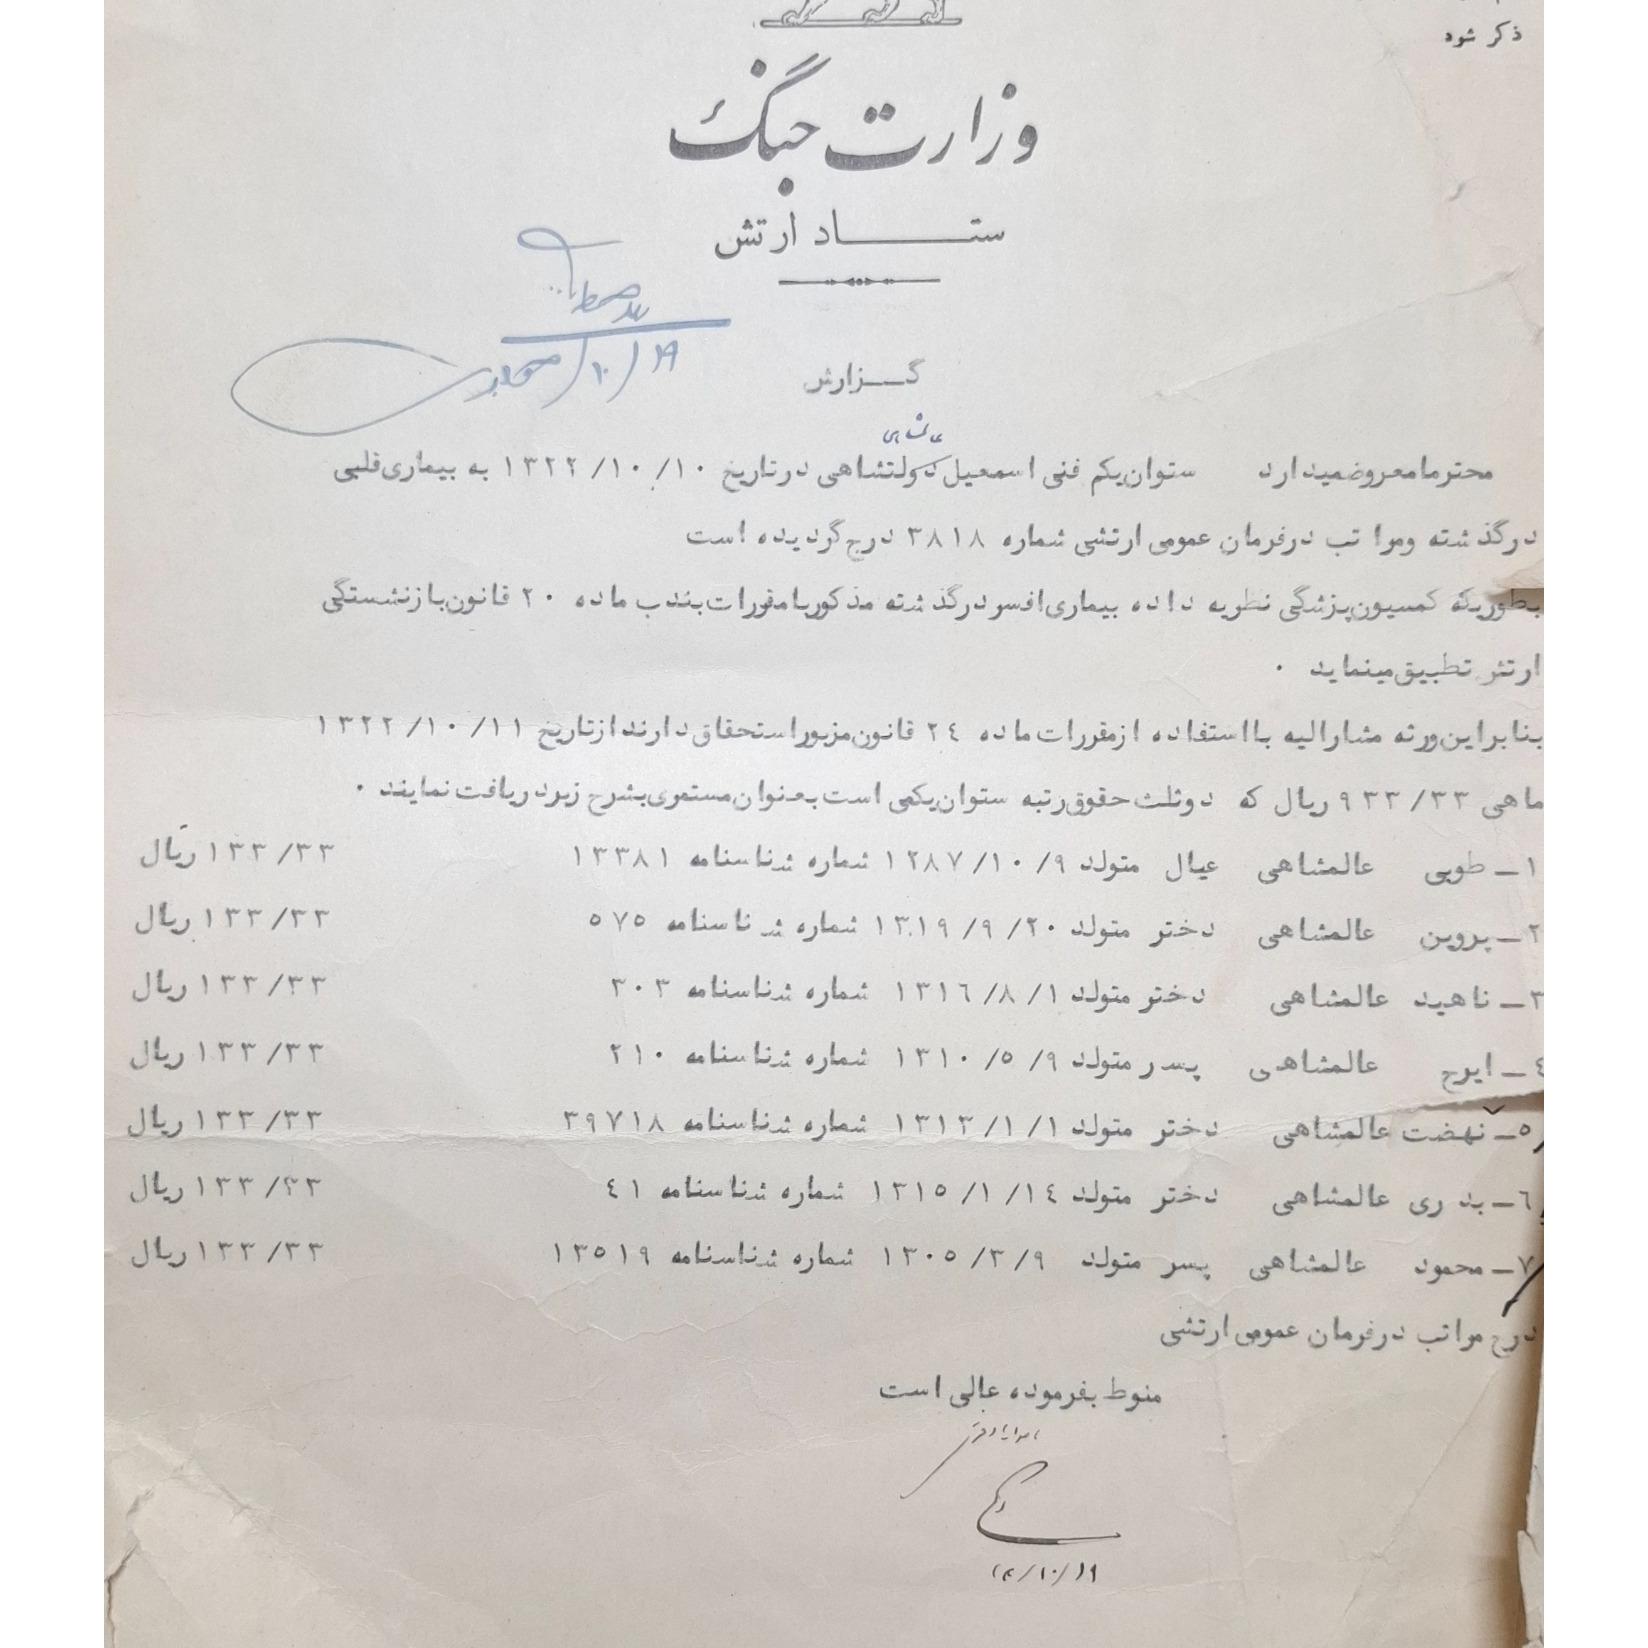 ذکر شود
وزارت جنگ
ستاد ارتش
۱۹/۱۰/
گزارش
محترما معروضمیدارد ستوان یکم فنی اسمعیل دولتشاهی در تاریخ ۱۳۲۲/۱۰/۱۰ به بیماری قلبی
درگذشته و مراتب در فرمان عمومی ارتشی شماره ۳۸۱۸ درج گردیده است
بطوریکه کمسیون پزشگی نظریه داده بیماری افسر درگذشته مذکور با مقررات بند ب ماده ۲۰ قانون بازنشستگی
ارتش تطبیق مینماید .
بنابراین ورثه مشارالیه با استفاده از مقررات ماده ۲٤ قانون مزبور استحقاق دارند از تاریخ ۱۳۲۲/۱۰/۱۱
ماهی ۹۳۳/۳۳ ریال که دوثلث حقوق رتبه ستوان یکمی است بعنوان مستمری بشرح زیر دریافت نمایند .
۱ـ طوبی عالمشاهی عیال متولد ۱۲۸۷/۱۰/۹ شماره شناسنامه ۱۳۳۸۱ ۱۳۳/۳۳ ریال
۲ـ پروین عالمشاهی دختر متولد ۱۳۱۹/۹/۲۰ شماره شناسنامه ۵۷۵ ۱۳۳/۳۳ ریال
۳ـ ناهید عالمشاهی دختر متولد ۱۳۱٦/۸/۱ شماره شناسنامه ۳۰۳ ۱۳۳/۳۳ ریال
٤ـ ایرج عالمشاهی پسر متولد ۱۳۱۰/۵/۹ شماره شناسنامه ۲۱۰ ۱۳۳/۳۳ ریال
۵ـ نهضت عالمشاهی دختر متولد ۱۳۱۳/۱/۱ شماره شناسنامه ۳۹۷۱۸ ۱۳۳/۳۳ ریال
٦ـ بدری عالمشاهی دختر متولد ۱۳۱۵/۱/۱٤ شماره شناسنامه ٤۱ ۱۳۳/۳۳ ریال
۷ـ محمود عالمشاهی پسر متولد ۱۳۰۵/۳/۹ شماره شناسنامه ۱۳۵۱۹ ۱۳۳/۳۳ ریال
درج مراتب در فرمان عمومی ارتشی
منوط بفرموده عالی است